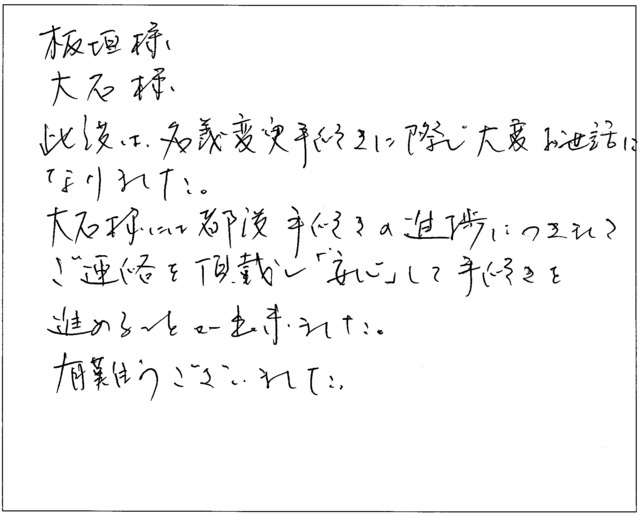 板垣様
大石様
此度は、名義変更手続きに際し大変お世話に
なりました。
大石様には都度手続きの進捗につきまして
ご連絡を頂戴し「安心」して手続きを
進めることが出来ました。
有難うございました。